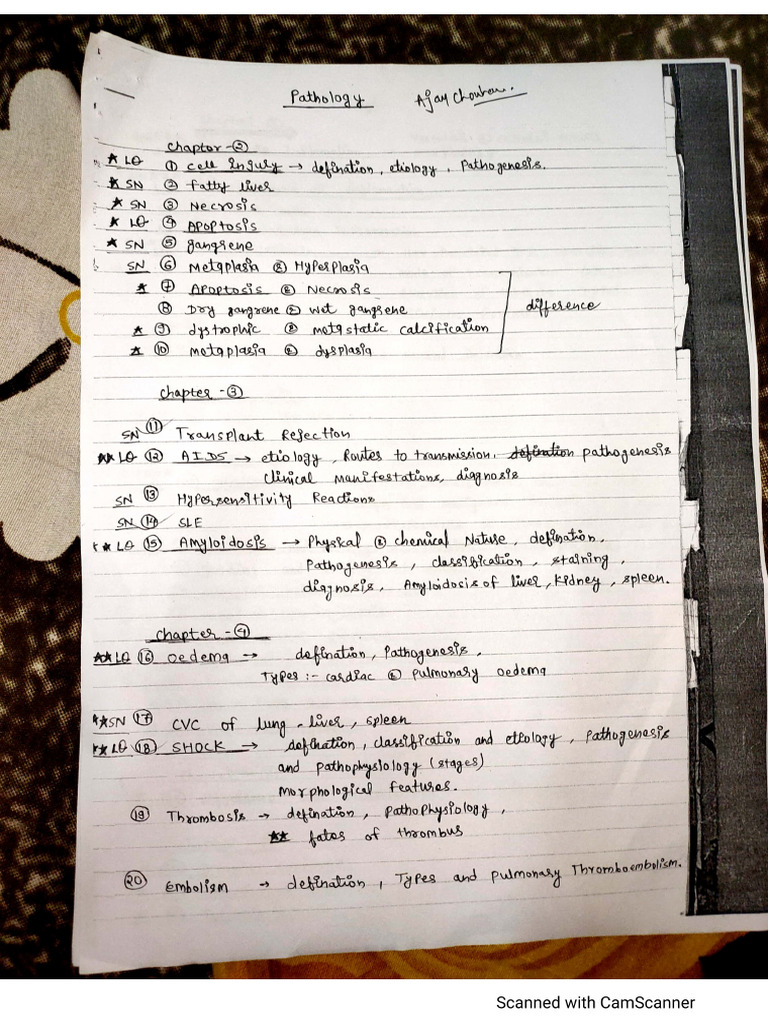 Pathology Ajay Chouhan.
Chapter-②
★ LQ ① Cell Injury → defination, etiology, Pathogenesis.
★ SN ② Fatty liver
★ SN ③ Necrosis
★ LQ ④ Apoptosis
★ SN ⑤ gangrene
SN ⑥ Metaplasia & Hyperplasia
★ ⑦ Apoptosis & Necrosis
⑧ Dry gangrene & wet gangrene difference
★ ⑨ dystrophic & metastatic calcification
★ ⑩ metaplasia & dysplasia
Chapter-③
SN ⑪ Transplant Rejection
★★ LQ ⑫ AIDS → etiology, Routes to transmission, defination pathogenesis
Clinical manifestations, diagnosis
SN ⑬ Hypersensitivity Reactions
SN ⑭ SLE
★★ LQ ⑮ Amyloidosis → Physical & chemical Nature, defination,
Pathogenesis, classification, staining,
diagnosis, Amyloidosis of liver, Kidney, spleen.
Chapter-④
★★ LQ ⑯ Oedema → defination, Pathogenesis,
Types :- cardiac & pulmonary oedema
★★ SN ⑰ CVC of lung - liver, spleen
★★ LQ ⑱ SHOCK → defination, classification and etiology, pathogenesis
and pathophysiology (stages)
morphological features.
⑲ Thrombosis → defination, pathophysiology,
★★ fates of thrombus
⑳ Embolism → defination, Types and pulmonary Thromboembolism.
Scanned with CamScanner